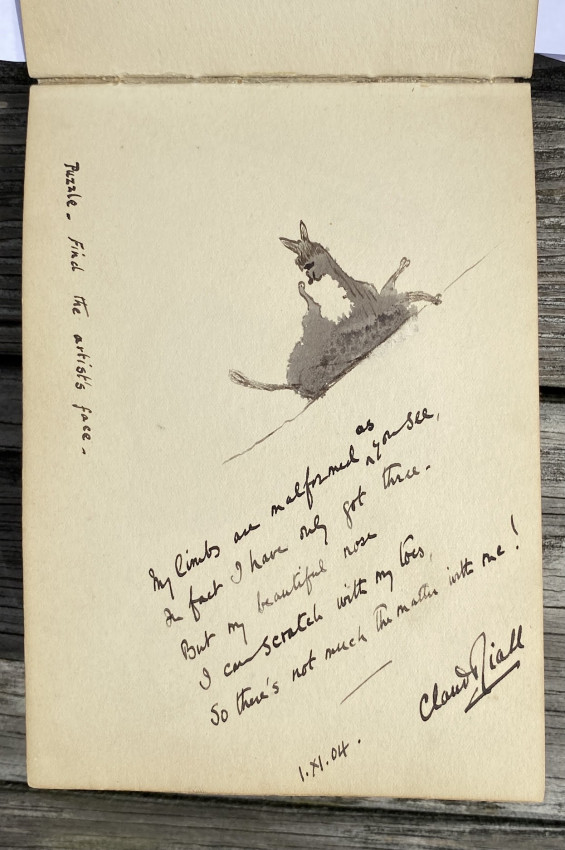 Puzzle - Find the artist's face -
My limbs are malformed as you see,
In fact I have only got three -
But my beautiful nose
I can scratch with my toes,
So there's not much the matter with me!
1.XI.04.